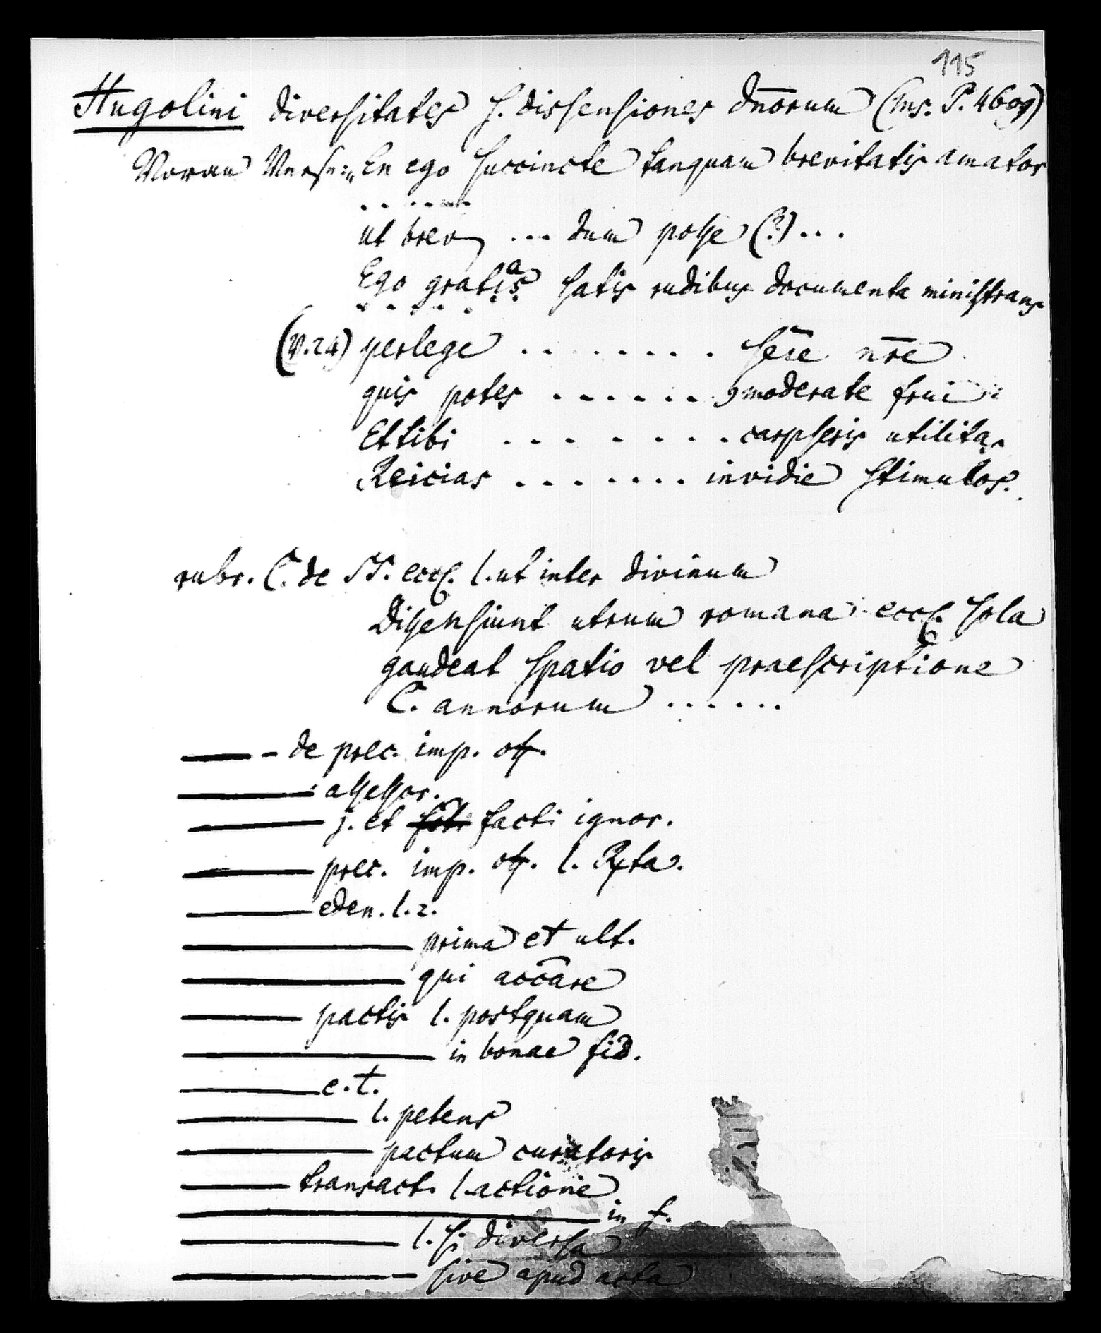 115
Hugolini diversitates s. dissensiones dn̄orum (Ms. P. 4609)
Voran Verse: En ego succincte tanquam brevitatis amator
......
ut brev ... dum posse (?) ...
Ego gratis satis rudibus documenta ministrans
(v. 24) perlege ........ sēre nr̄e
quis potes ...... moderate frui
Et tibi ........ carpseris utilitas
Reicias ....... invidie stimulos.
rubr. C. de SS. eccl. l. ut inter divinum
Dissensiunt utrum romana eccl. sola
gaudeat spatio vel praescriptione
C. annorum ......
— - de prec. imp. off.
— assessor.
— j. et facti ignor.
— prec. imp. off. l.
— eden. l. 2.
— prima et ult.
— qui acc̄are
— pactis l. postquam
— in bonae fid.
— e. t.
— l. petens
— pactum curatoris
— transact. l. actione
— in f.
— l. si diversa
— sive apud acta